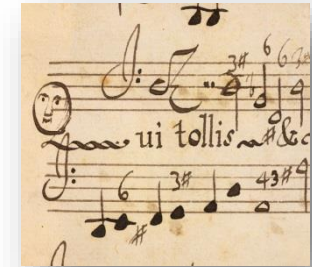 3# 6 6 3#
Qui tollis &c
6 # 3# 43#